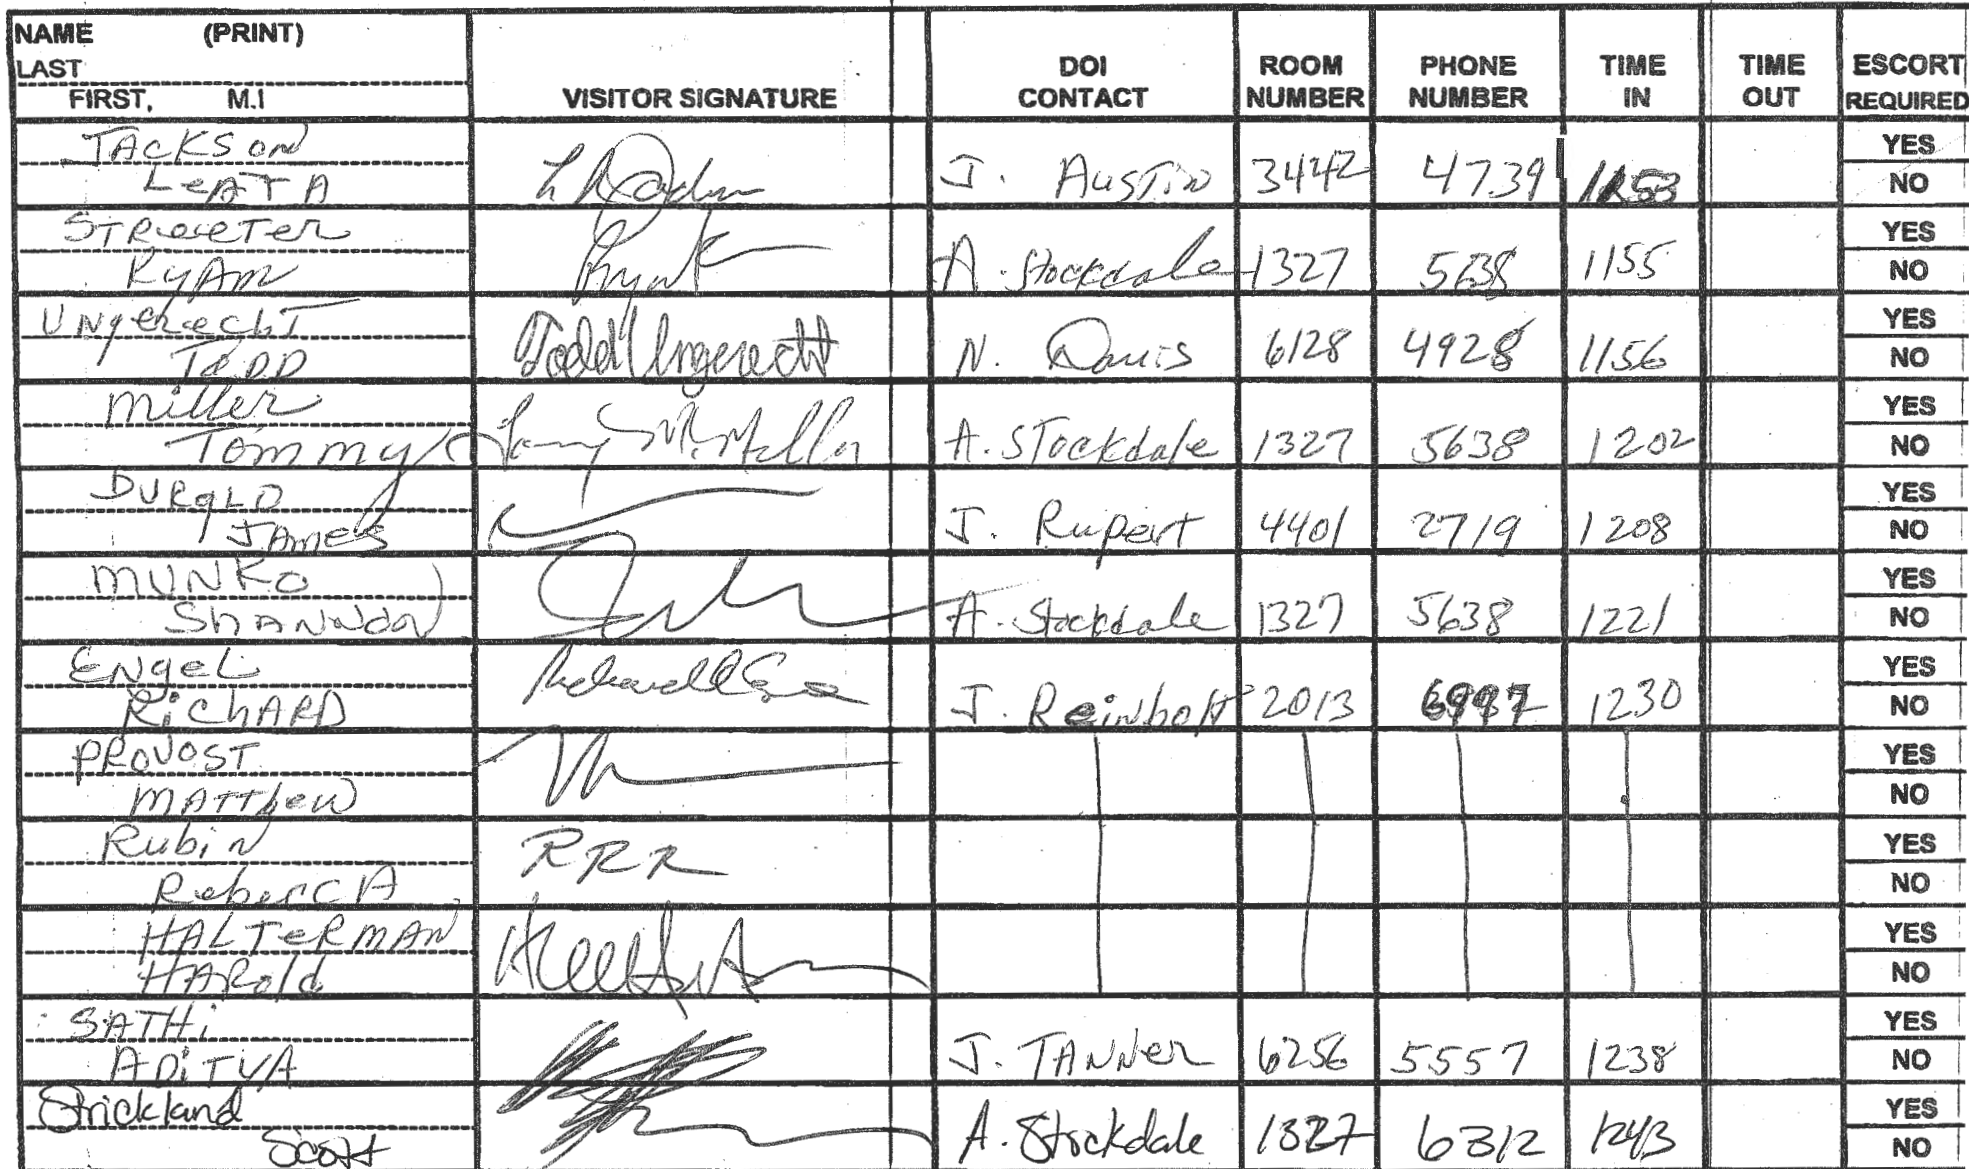 NAME (PRINT)
LAST
FIRST, M.I
VISITOR SIGNATURE
DOI CONTACT
ROOM NUMBER
PHONE NUMBER
TIME IN
TIME OUT
ESCORT REQUIRED
JACKSON
LeATA
J. Austin 3442 4739 1153
YES
NO
STREETER
RYAN
A. Stockdale 1327 5638 1155
YES
NO
UNgerechT
TODD
Todd Ungerecht
N. Davis 6128 4928 1156
YES
NO
Miller
Tommy
A. Stockdale 1327 5638 1202
YES
NO
DURgLO
JAMES
J. Rupert 4401 2719 1208
YES
NO
MUNKO
ShANNON
A. Stockdale 1327 5638 1221
YES
NO
ENgeL
RichARD
J. Reinbolt 2013 1230
YES
NO
PROVOST
MATThew
YES
NO
Rubin
RebeccA
RRR
YES
NO
HALTERMAN
HARold
YES
NO
SATHi
ADiTYA
J. TANNer 6256 5557 1238
YES
NO
Strickland
Scott
A. Stockdale 1327 6312 1243
YES
NO